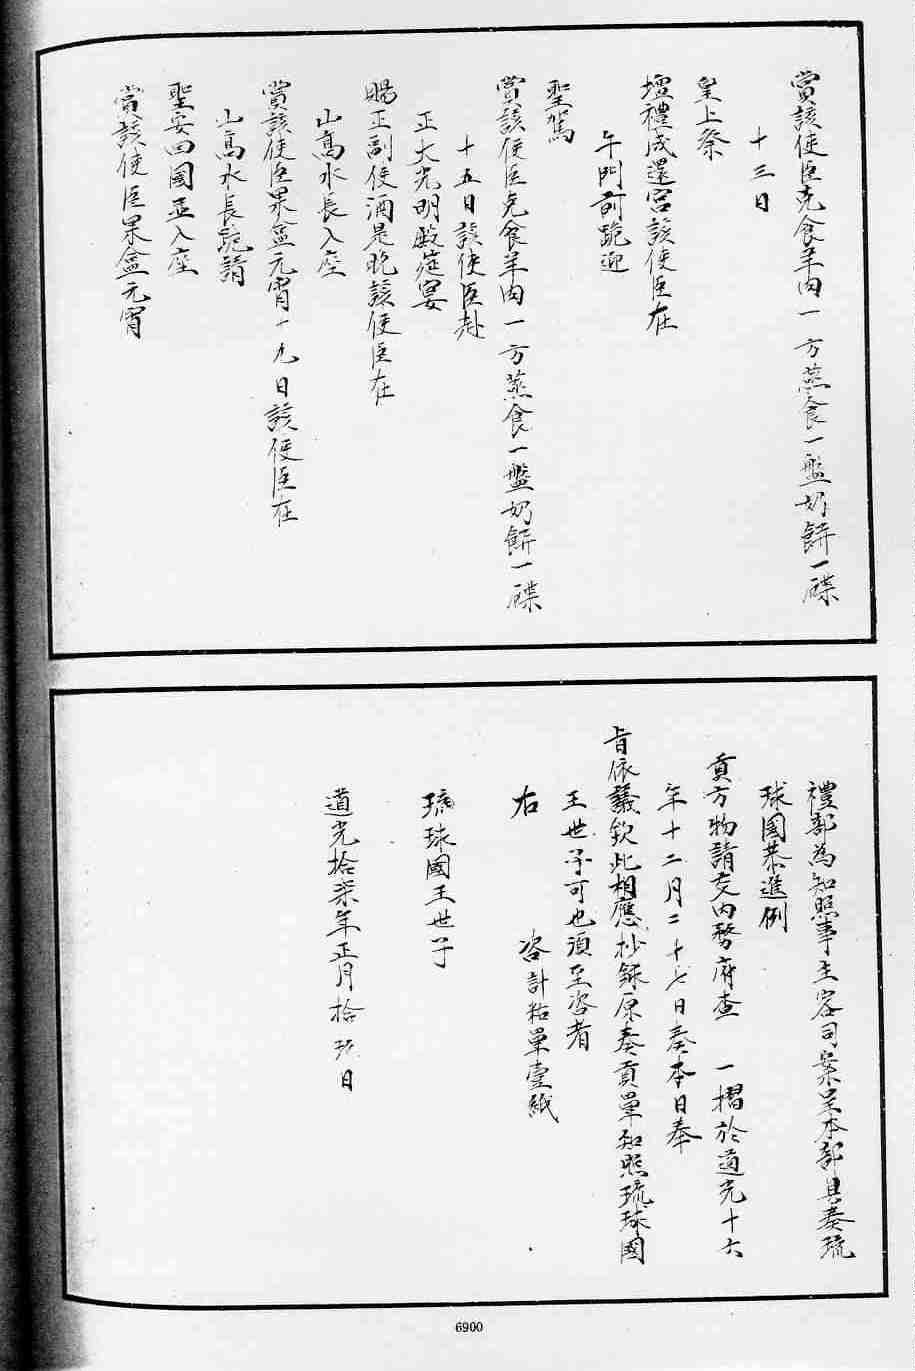 賞該使臣克食羊肉一方蒸食一盤奶餅一碟
十三日
皇上祭
壇禮成還宮該使臣在
午門前跪迎
聖駕
賞該使臣克食羊肉一方蒸食一盤奶餅一碟
十五日該使臣赴
正大光明殿筵宴
賜正副使酒是晚該使臣在
山高水長入座
賞該使臣果盒元宵十九日該使臣在
山高水長跪請
聖安回國並入座
賞該使臣果盒元宵
禮部為知照事主客司案呈本部具奏琉
球國恭進例
貢方物請交內務府查 一摺於道光十六
年十二月二十七日奏本日奉
旨依議欽此相應抄錄原奏貢單知照琉球國
王世子可也須至咨者
右 咨計粘單壹紙
琉球國王世子
道光拾柒年正月拾 日
6900